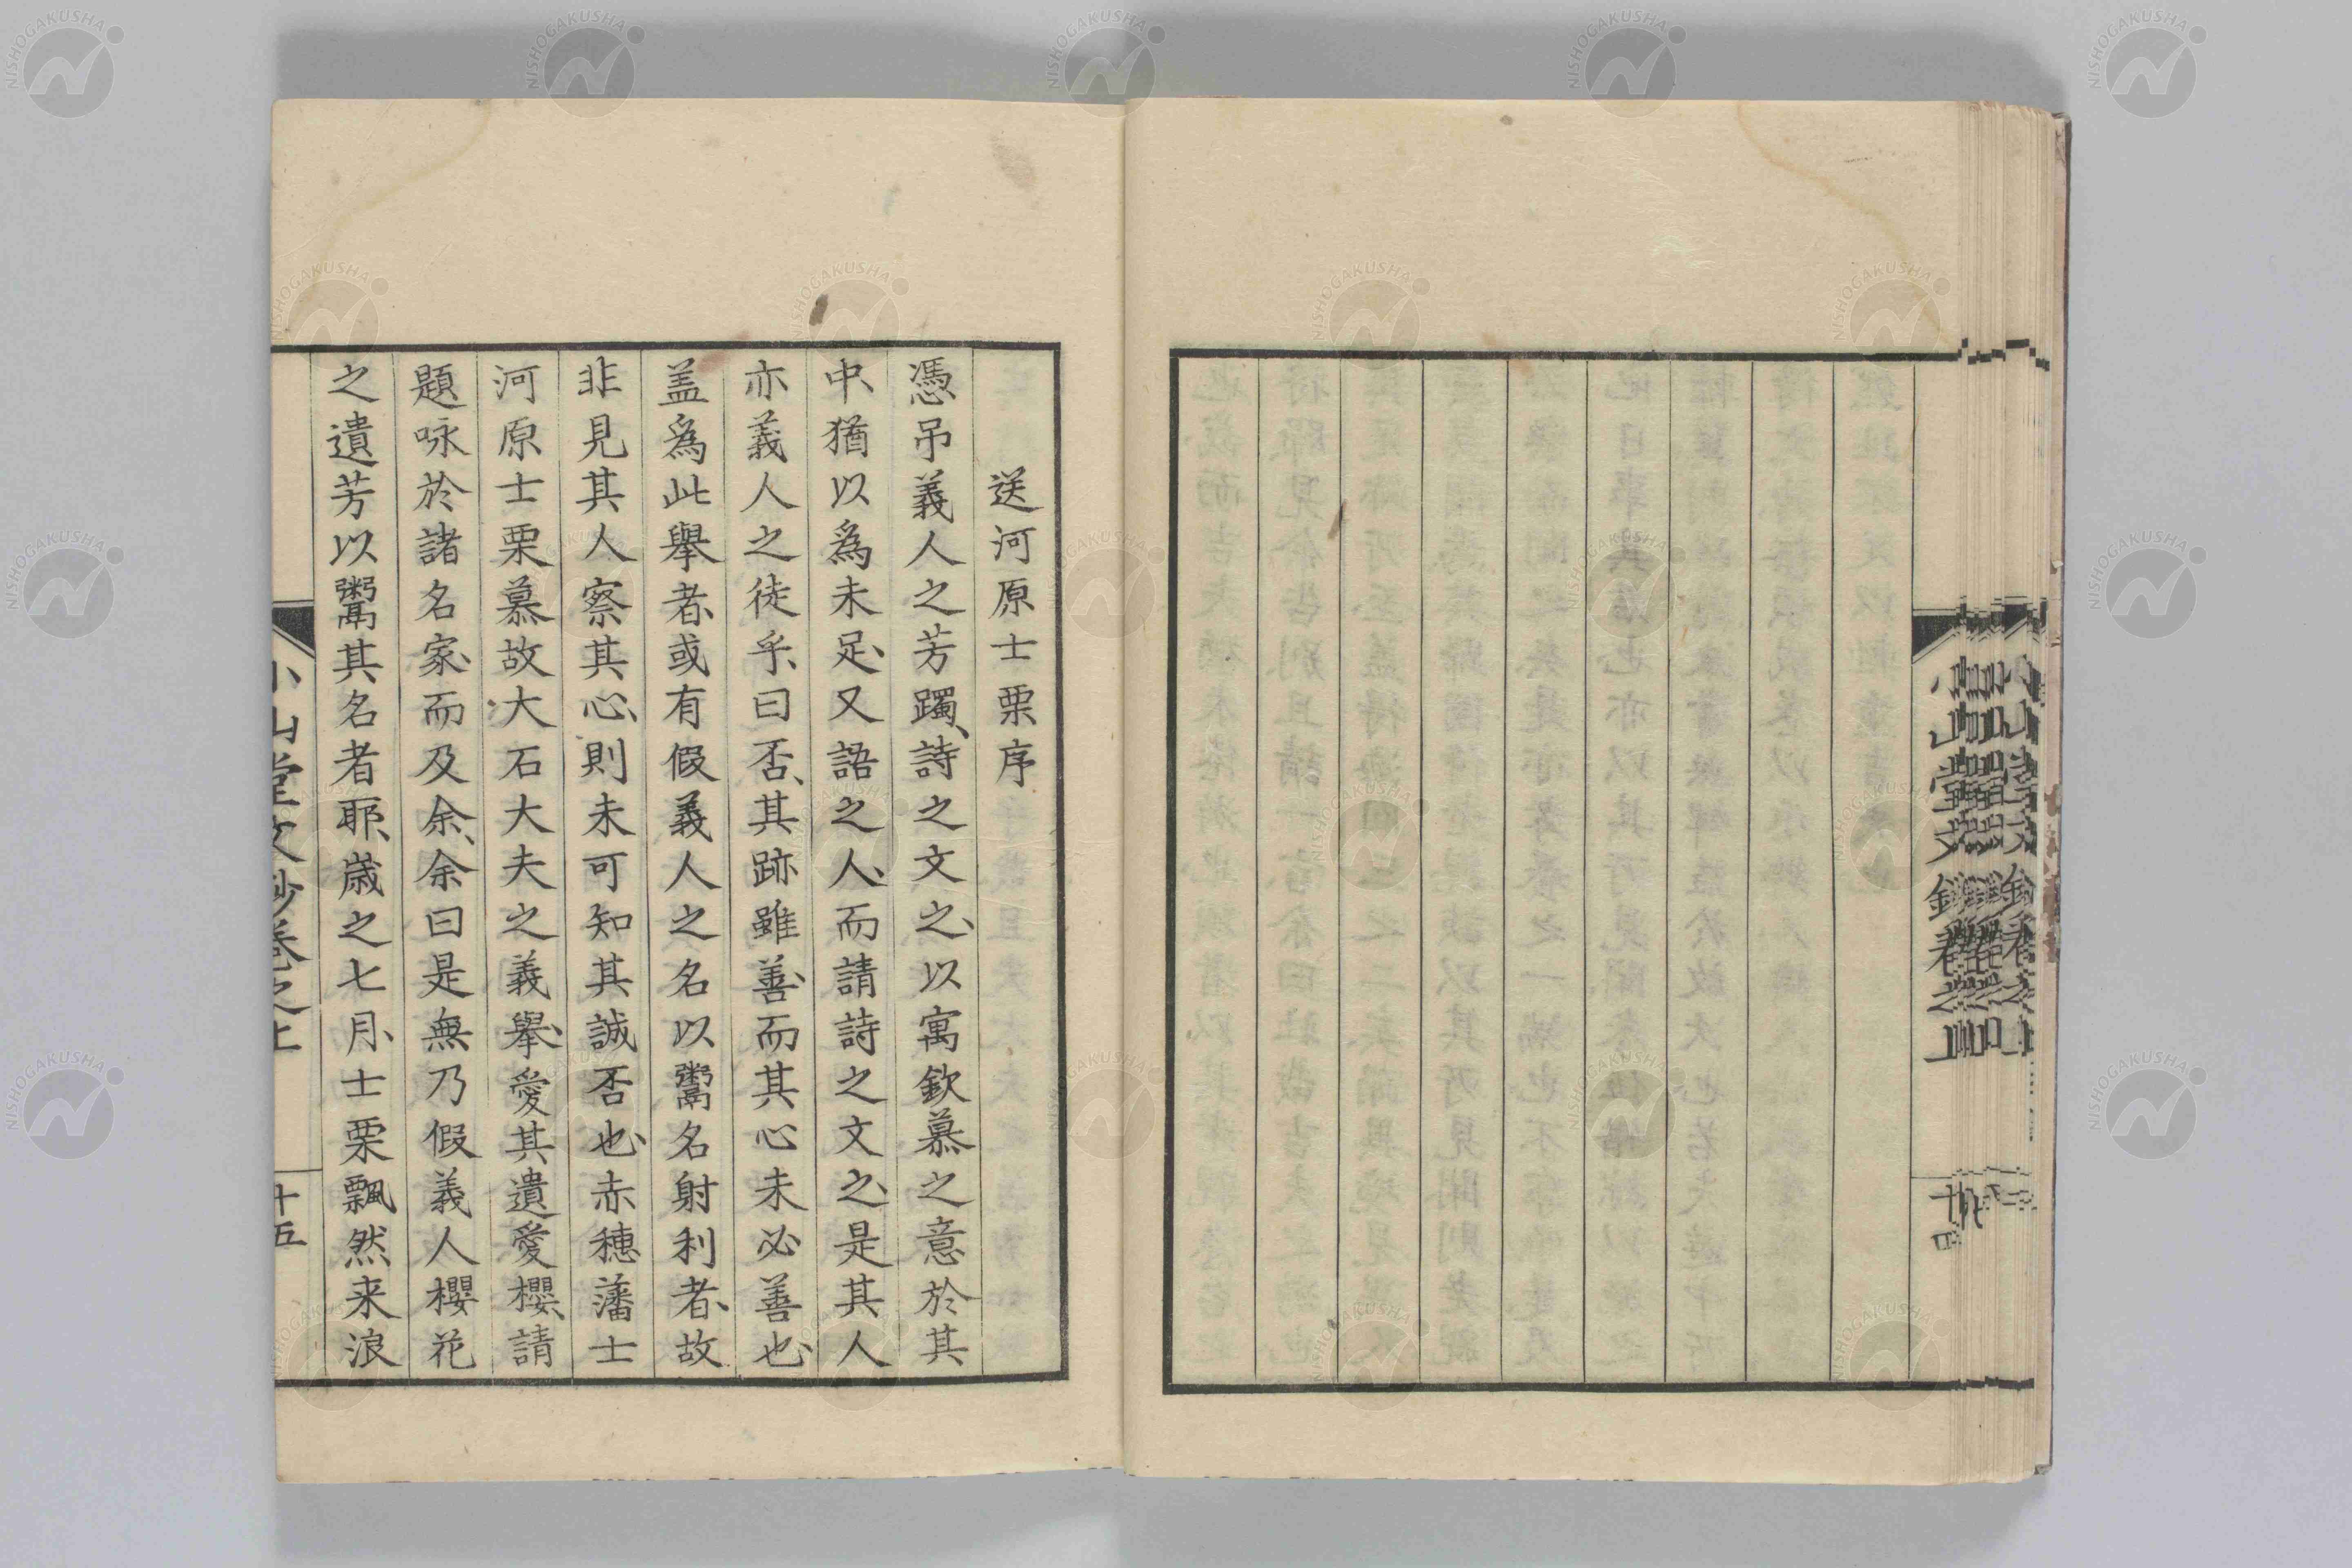 送河原士栗序
憑吊義人之芳躅、詩之文之、以寓欽慕之意於其
中、猶以爲未足、又語之人、而請詩之文之、是其人
亦義人之徒乎、曰否、其跡雖善、而其心未必善也、
盖爲此擧者、或有假義人之名以鬻名射利者、故
非見其人察其心、則未可知其誠否也、赤穗藩士
河原士栗慕故大石大夫之義擧、愛其遺愛櫻、請
題咏於諸名家、而及余、余曰是無乃假義人櫻花
之遺芳以鬻其名者耶、歳之七月、士栗飄然来浪
小山堂文鈔卷之上
十五
小山堂文鈔卷之上
十四
NISHOGAKUSHA